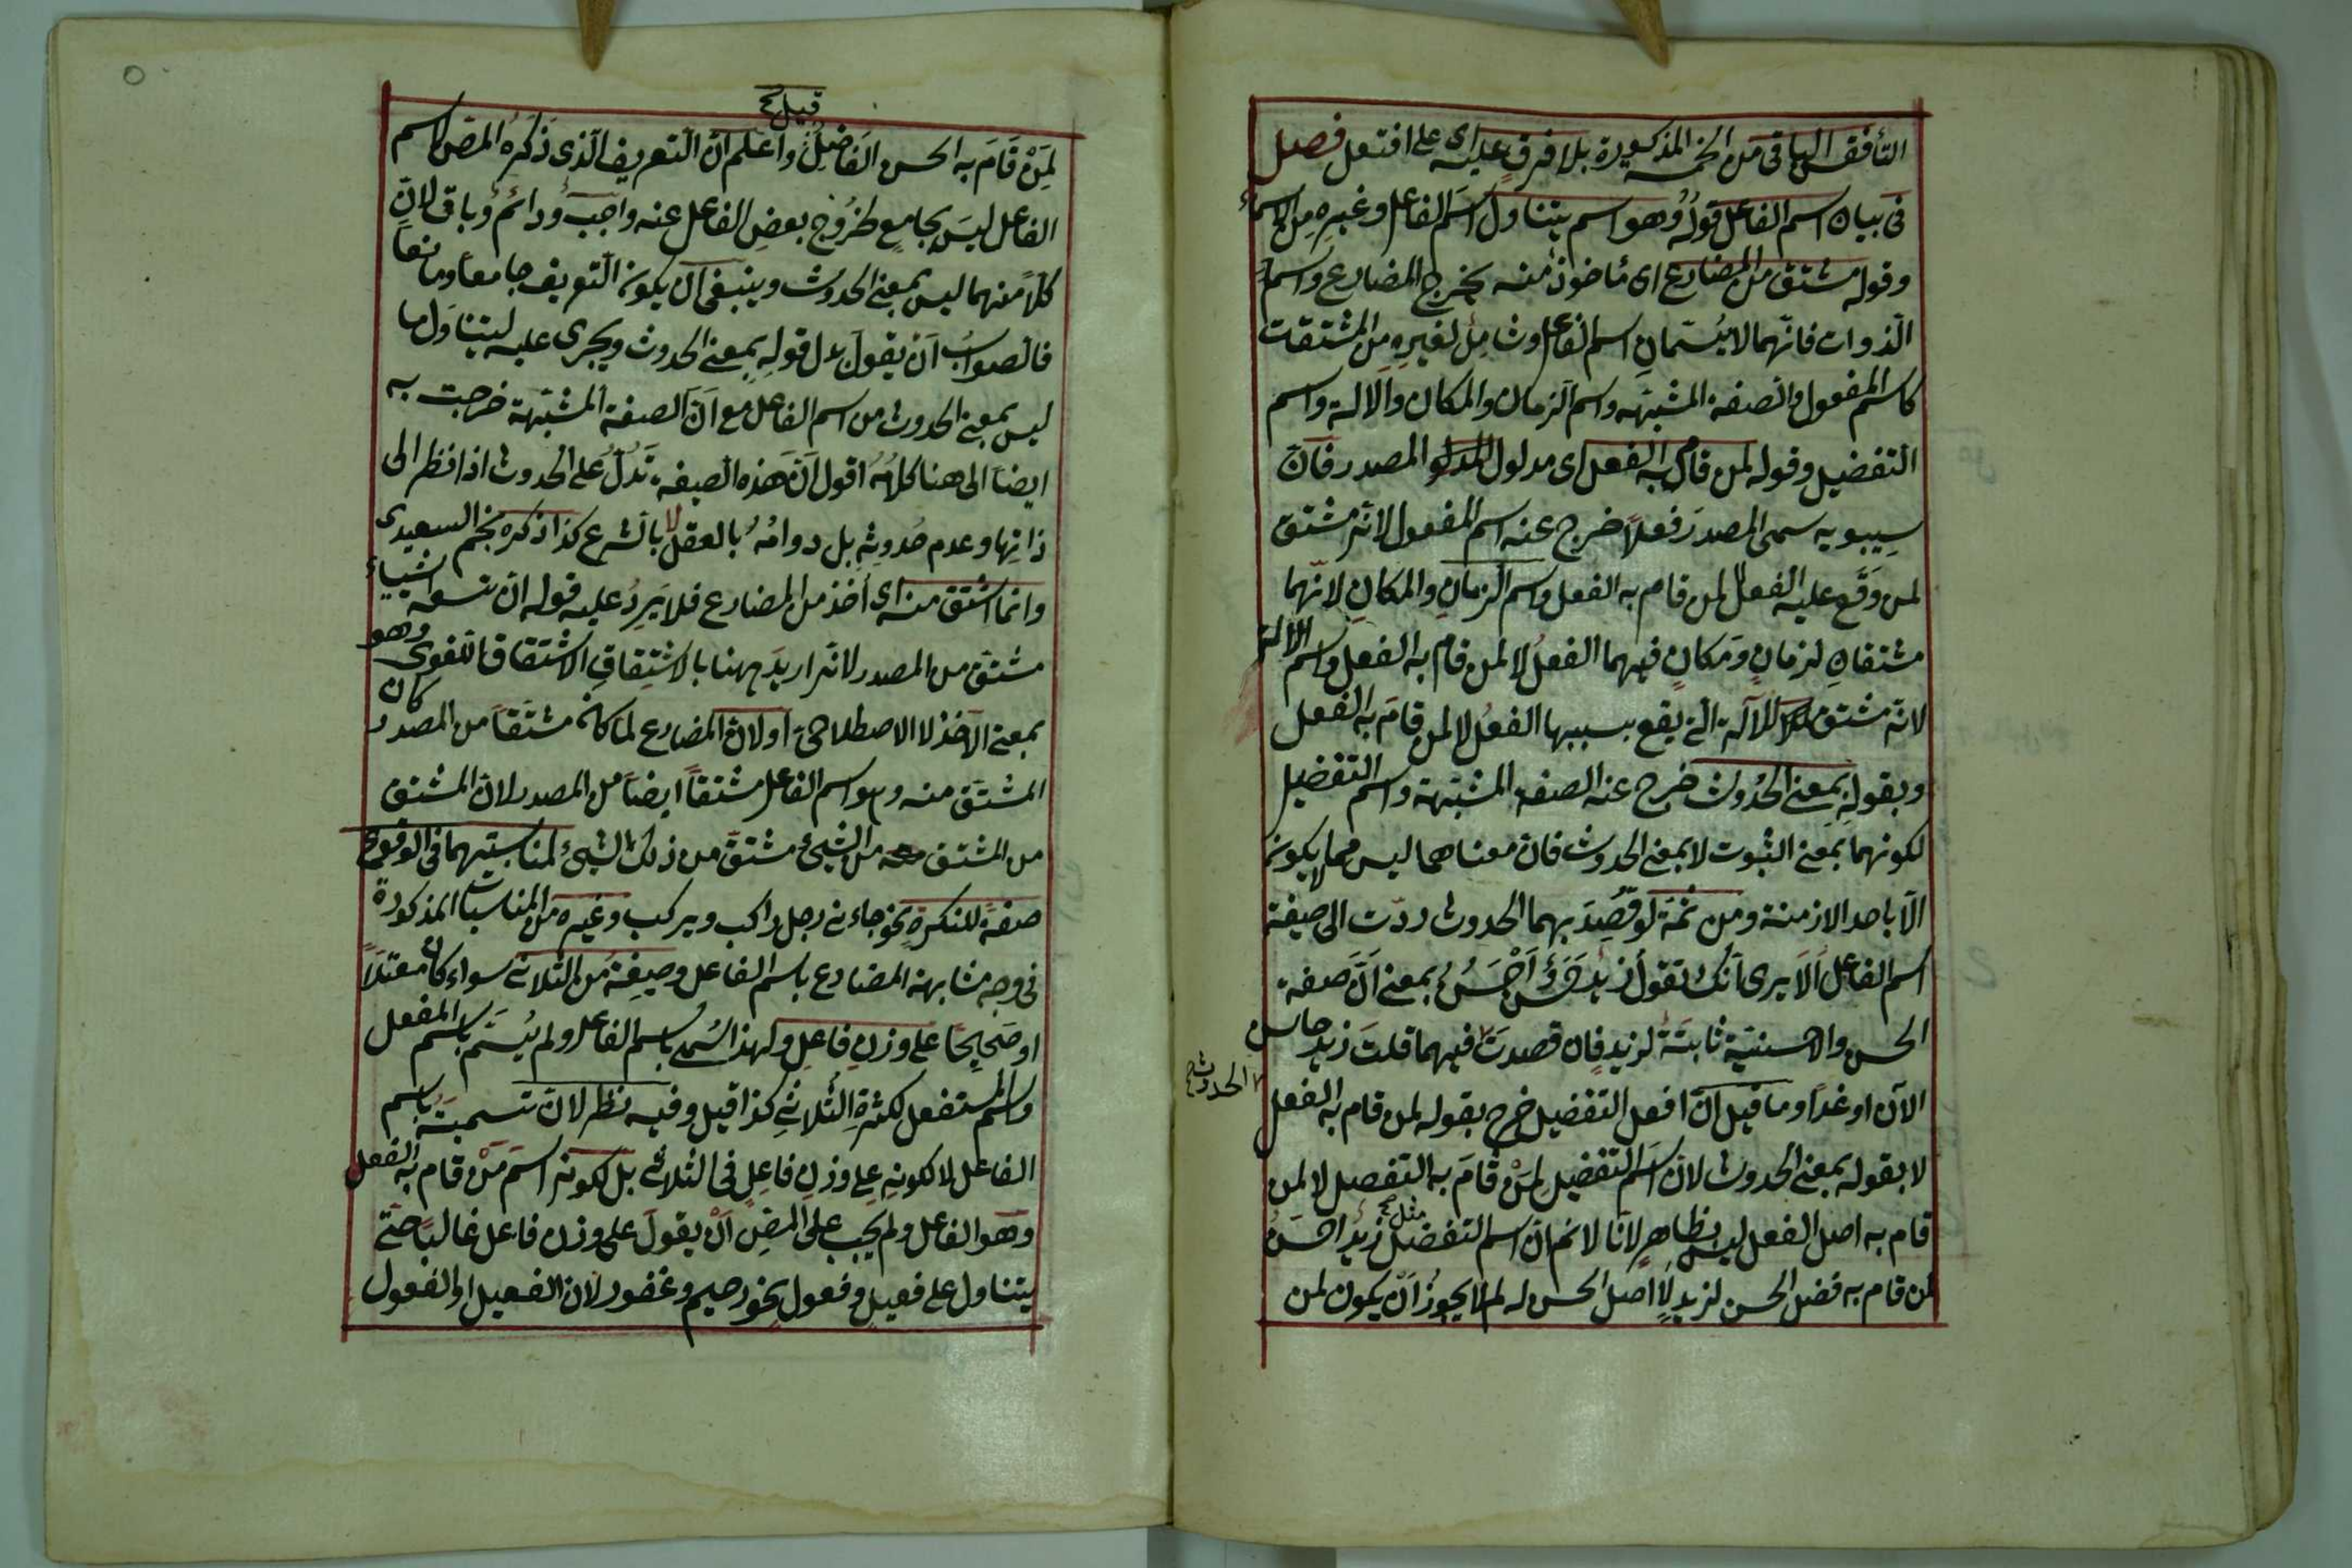 الباقى من الخمسة المذكورة بلا فرق عليه اى على افتعل فصل
فى بيان اسم الفاعل قوله وهو اسم يتناول اسم الفاعل وغيره من الاسماء
وقوله مشتق من المضارع اى مأخوذ منه يخرج المضارع واسماء
الذوات فانهما لا يسميان اسم الفاعل وشامل لغيره من المشتقات
كاسم المفعول والصفة المشبهه واسم الزمان والمكان والالة واسم
التفضيل وقوله لمن قام به الفعل اى مدلول المصدر فان
سيبويه سمى المصدر فعلاً خرج عنه اسم المفعول لانه مشتق
لمن وقع عليه الفعل لا لمن قام به الفعل واسم الزمان والمكان لانهما
مشتقان لزمان ومكان فيهما الفعل لا لمن قام به الفعل واسم الالة
لانه مشتق للآلة التى يقع بسببها الفعل لا لمن قام به الفعل
وبقوله بمعنى الحدوث خرج عنه الصفة المشبهة واسم التفضيل
لكونهما بمعنى الثبوت لا بمعنى الحدوث فان معناهما ليس مما لا يكون
الا باحد الازمنة ومن ثمة لو قصد بهما الحدوث ردت الى صيغة
اسم الفاعل الا يرى انك تقول زيد حسن واحسن بمعنى ان صفة
الحسن والاحسنية ثابتة لزيد فان قصدت فيهما قلت زيد حاسن
الحدوث صح
الآن او غدا وما قيل ان افعل التفضيل خرج بقوله لمن قام به الفعل
لا بقوله بمعنى الحدوث لان اسم التفضيل لمن قام به التفضيل لا لمن
قام به اصل الفعل ليس بظاهر لانا لا نم ان اسم التفضيل زيد احسن
مثل
لمن قام به فضل الحسن لزيد لا اصل الحسن له لم لا يجوز ان يكون لمن
قيل
لمن قام به الحسن الفاضل واعلم ان التعريف الذى ذكره المص لاسم
الفاعل ليس بجامع لخروج بعض الفاعل عنه واجب ودائم وباق لان
كلا منهما ليس بمعنى الحدوث وينبغى ان يكون التعريف جامعا ومانعا
فالصواب ان يقول بدل قوله بمعنى الحدوث ويجرى عليه ليتناول ما
ليس بمعنى الحدوث من اسم الفاعل مع ان الصفة المشبهة خرجت به
ايضا الى هنا كلامه اقول ان هذه الصيغة تدل على الحدوث اذا نظر الى
ذاتها وعدم حدوثه بل دوامه بالعقل لا بالشرع كذا ذكره نجم السعيدى
وانما اشتق منه اى أخذ من المضارع فلا يرد عليه قوله ان تسعة اشياء
مشتق من المصدر لانه اريد ههنا بالاشتقاق الاشتقاق اللغوى وهو
بمعنى الاخذ لا الاصطلاحى او لان المضارع لما كان مشتقا من المصدر كان
المشتق منه وهو اسم الفاعل مشتقا ايضا من المصدر لان المشتق
من المشتق من الشىء مشتق من ذلك الشىء لمناسبتهما فى الوقوع
صفة للنكرة نحو جاءنى رجل راكب ويركب وغيره من المناسبات المذكورة
فى وجه مشابهة المضارع باسم الفاعل وصيغة من الثلاثى سواء كان معتلا
او صحيحا على وزن فاعل ولهذا سمى باسم الفاعل ولم يسم باسم المفعل
واسم المستفعل لكثرة الثلاثى كذا قيل وفيه نظر لان تسميته باسم
الفاعل لا لكونه على وزن فاعل فى الثلاثى بل لكونه اسم من قام به الفعل
وهو الفاعل ولم يجب على المص ان يقول على وزن فاعل غالبا حتى
يتناول على فعيل وفعول نحو رحيم وغفور لان الفعيل او الفعول